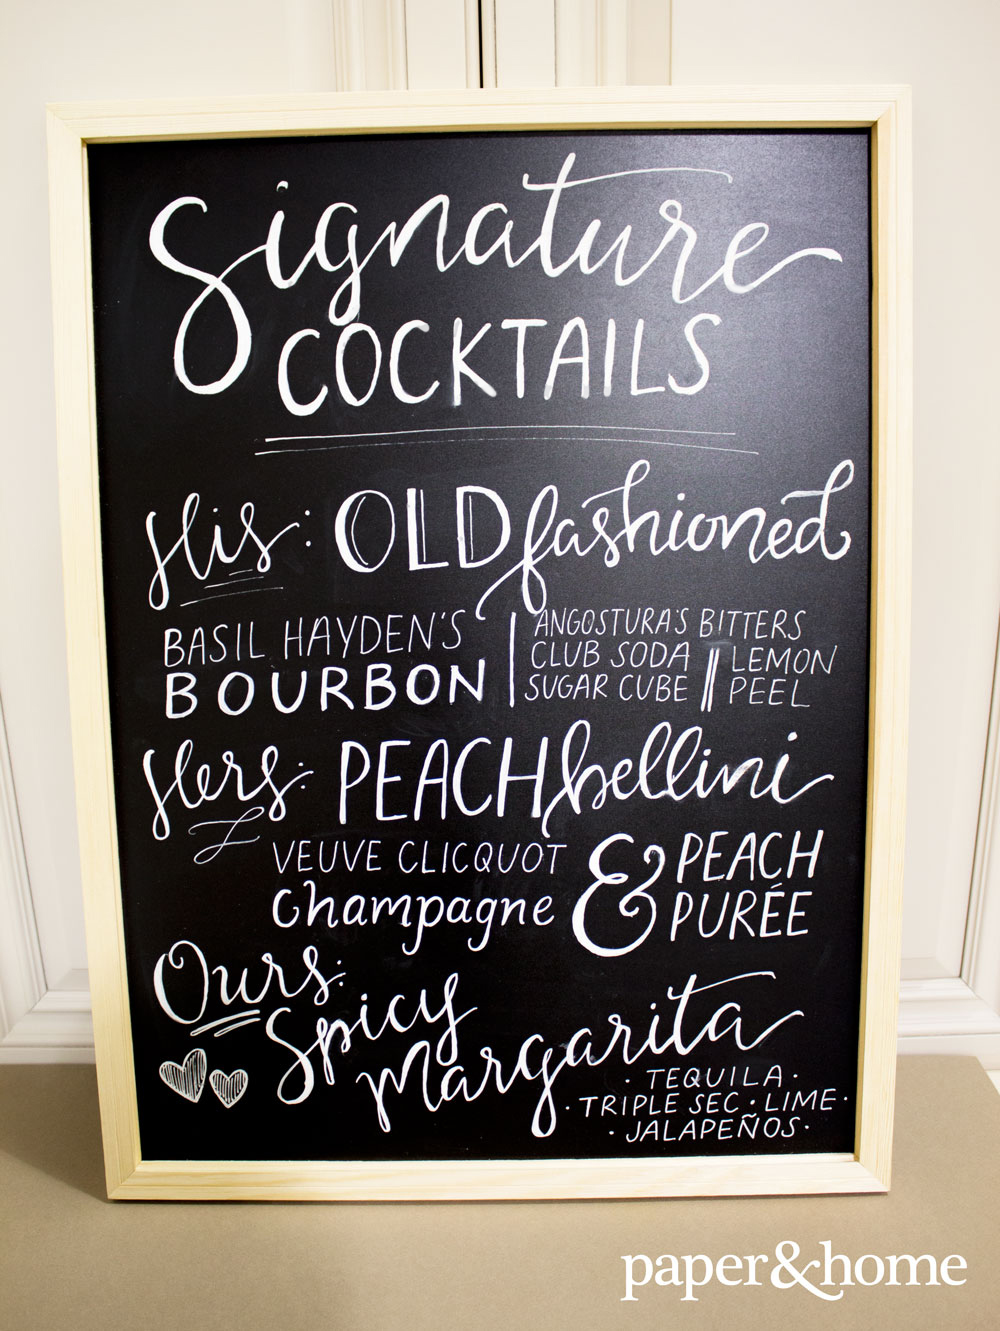 Signature
COCKTAILS
His: OLD fashioned
BASIL HAYDEN'S
BOURBON
ANGOSTURA'S BITTERS
CLUB SODA
SUGAR CUBE
LEMON
PEEL
Hers: PEACH bellini
VEUVE CLICQUOT
Champagne
& PEACH
PURÉE
Ours:
Spicy
Margarita
· TEQUILA ·
· TRIPLE SEC · LIME ·
· JALAPEÑOS ·
paper&home